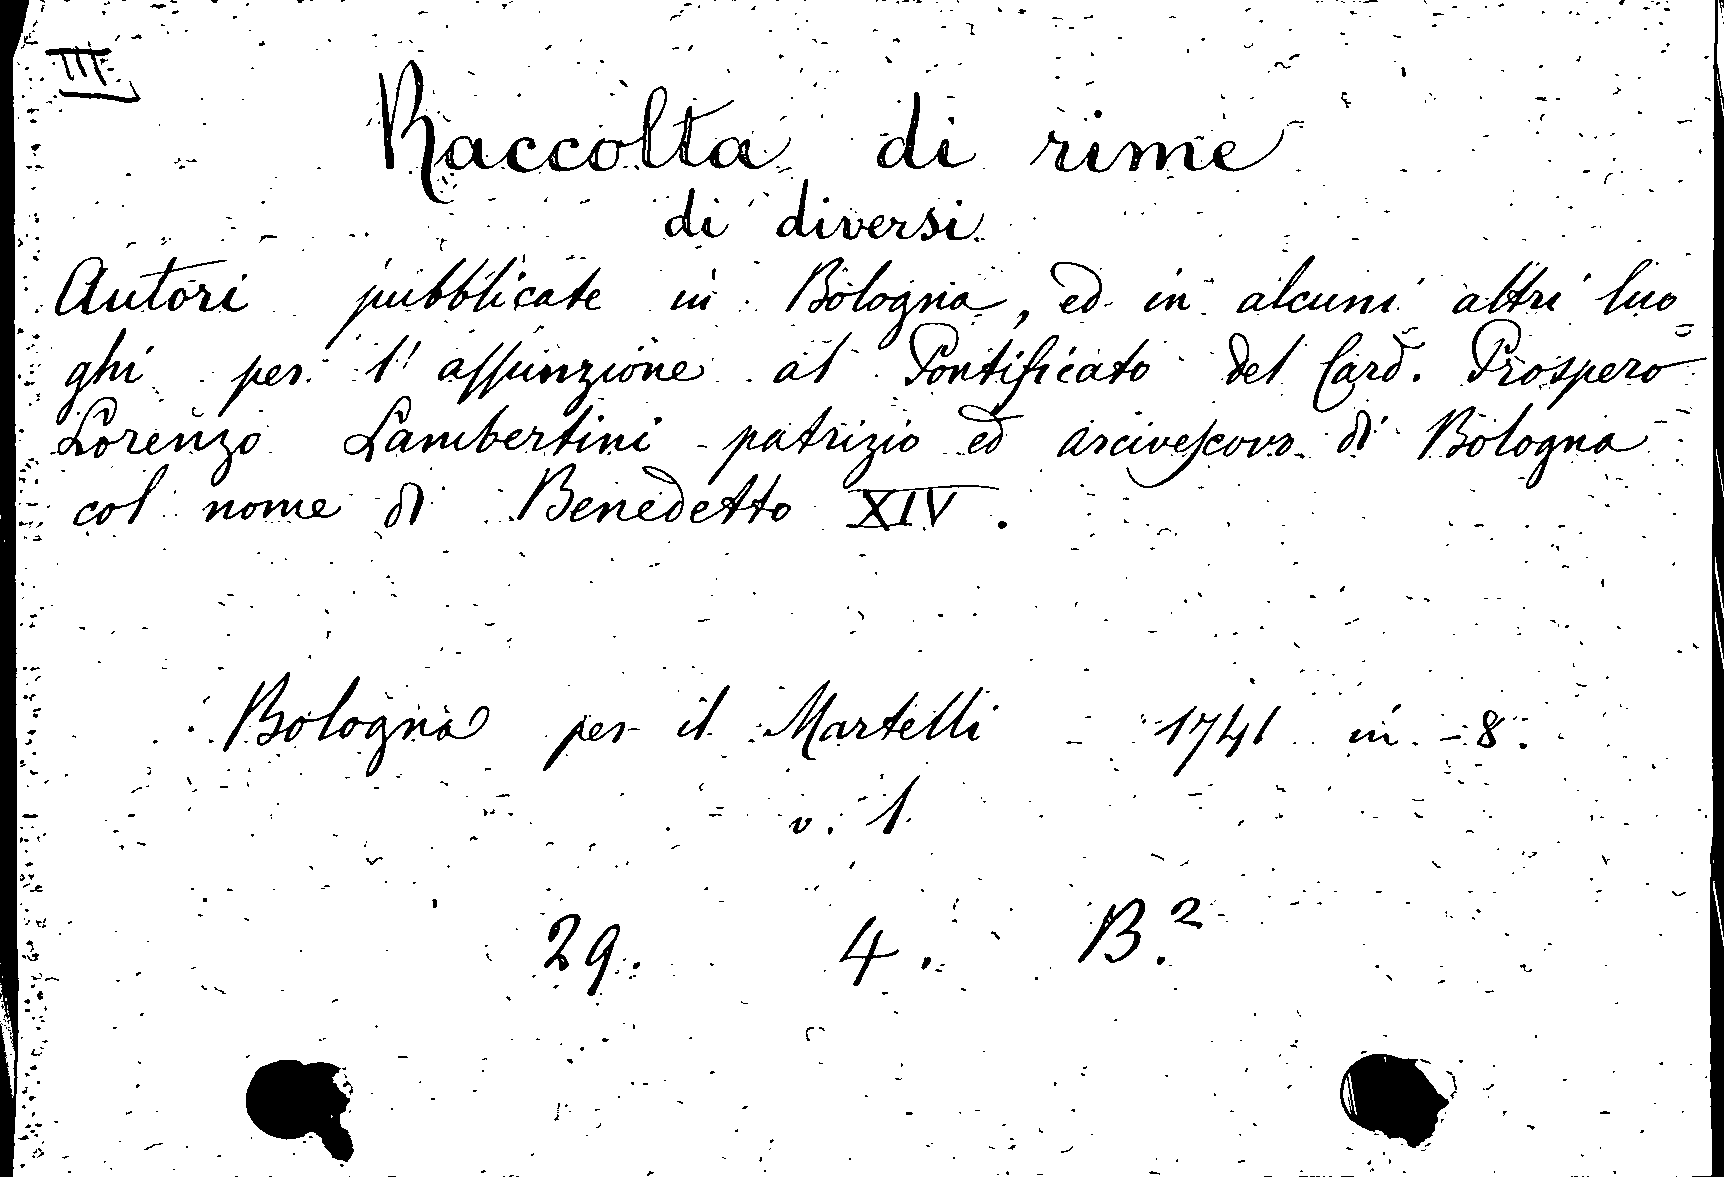 III
Raccolta di rime
di diversi
Autori pubblicate in Bologna, ed in alcuni altri luo=
ghi per l'assunzione al Pontificato del Card. Prospero
Lorenzo Lambertini patrizio ed arcivescovo di Bologna
col nome di Benedetto XIV.
Bologna per il Martelli 1741 in-8.
v. 1.
29. 4. B.²